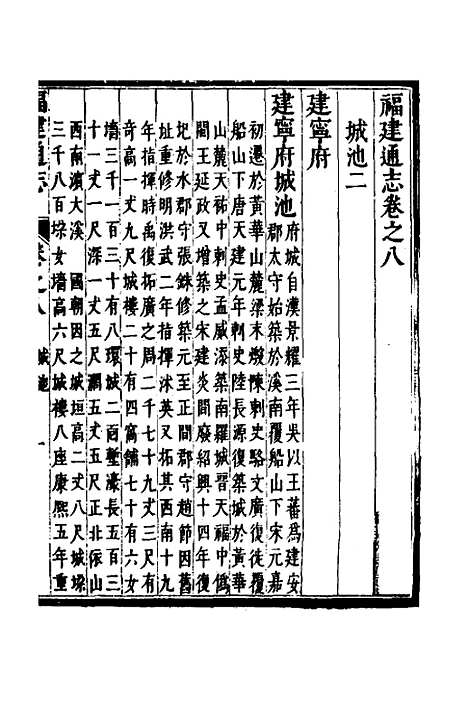 福建通志卷之八
城池二
建寧府
建寧府城池
府城自漢景耀三年吳以王蕃為建安
郡太守始築於溪南覆船山下宋元嘉
初遷於黃華山麓梁末燬陳刺史駱文廣復徙覆
船山下唐天建元年刺史陸長源復築城於黃華
山麓天祐中刺史孟威添築南羅城晉天福中偽
閩王延政又增築之宋建炎間廢紹興十四年復
圮於水郡守張銖修築元至正間郡守趙節因舊
址重修明洪武二年指揮沐英又拓其西南十九
年指揮時禹復拓廣之周二千七十九丈三尺有
奇高一丈九尺城樓二十有四窩舖七十有六女
墻三千一百三十有八環城二面塹濠長五百三
十一丈一尺深一丈五尺濶五丈五尺正北依山
西南濱大溪　國朝因之城垣高二丈八尺城垛
三千八百垛女墻高六尺城樓八座康熙五年重
福建通志
卷之八
城池
一